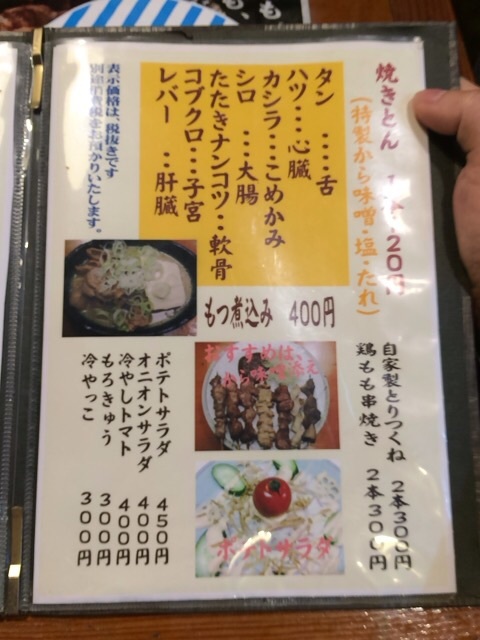 焼きとん
20円
(特製から味噌・塩・たれ)
タン ‥‥舌
ハツ‥‥心臓
カシラ‥‥こめかみ
シロ ‥‥大腸
たたきナンコツ‥軟骨
コブクロ‥‥子宮
レバー ‥肝臓
表示価格は、税抜きです
別途消費税をお預かりいたします。
もつ煮込み 400円
自家製とりつくね 2本300円
鶏もも串焼き 2本300円
おすすめは、
から味噌添え
ポテトサラダ 450円
オニオンサラダ 400円
冷やしトマト 400円
もろきゅう 300円
冷やっこ 300円
ポテトサラダ